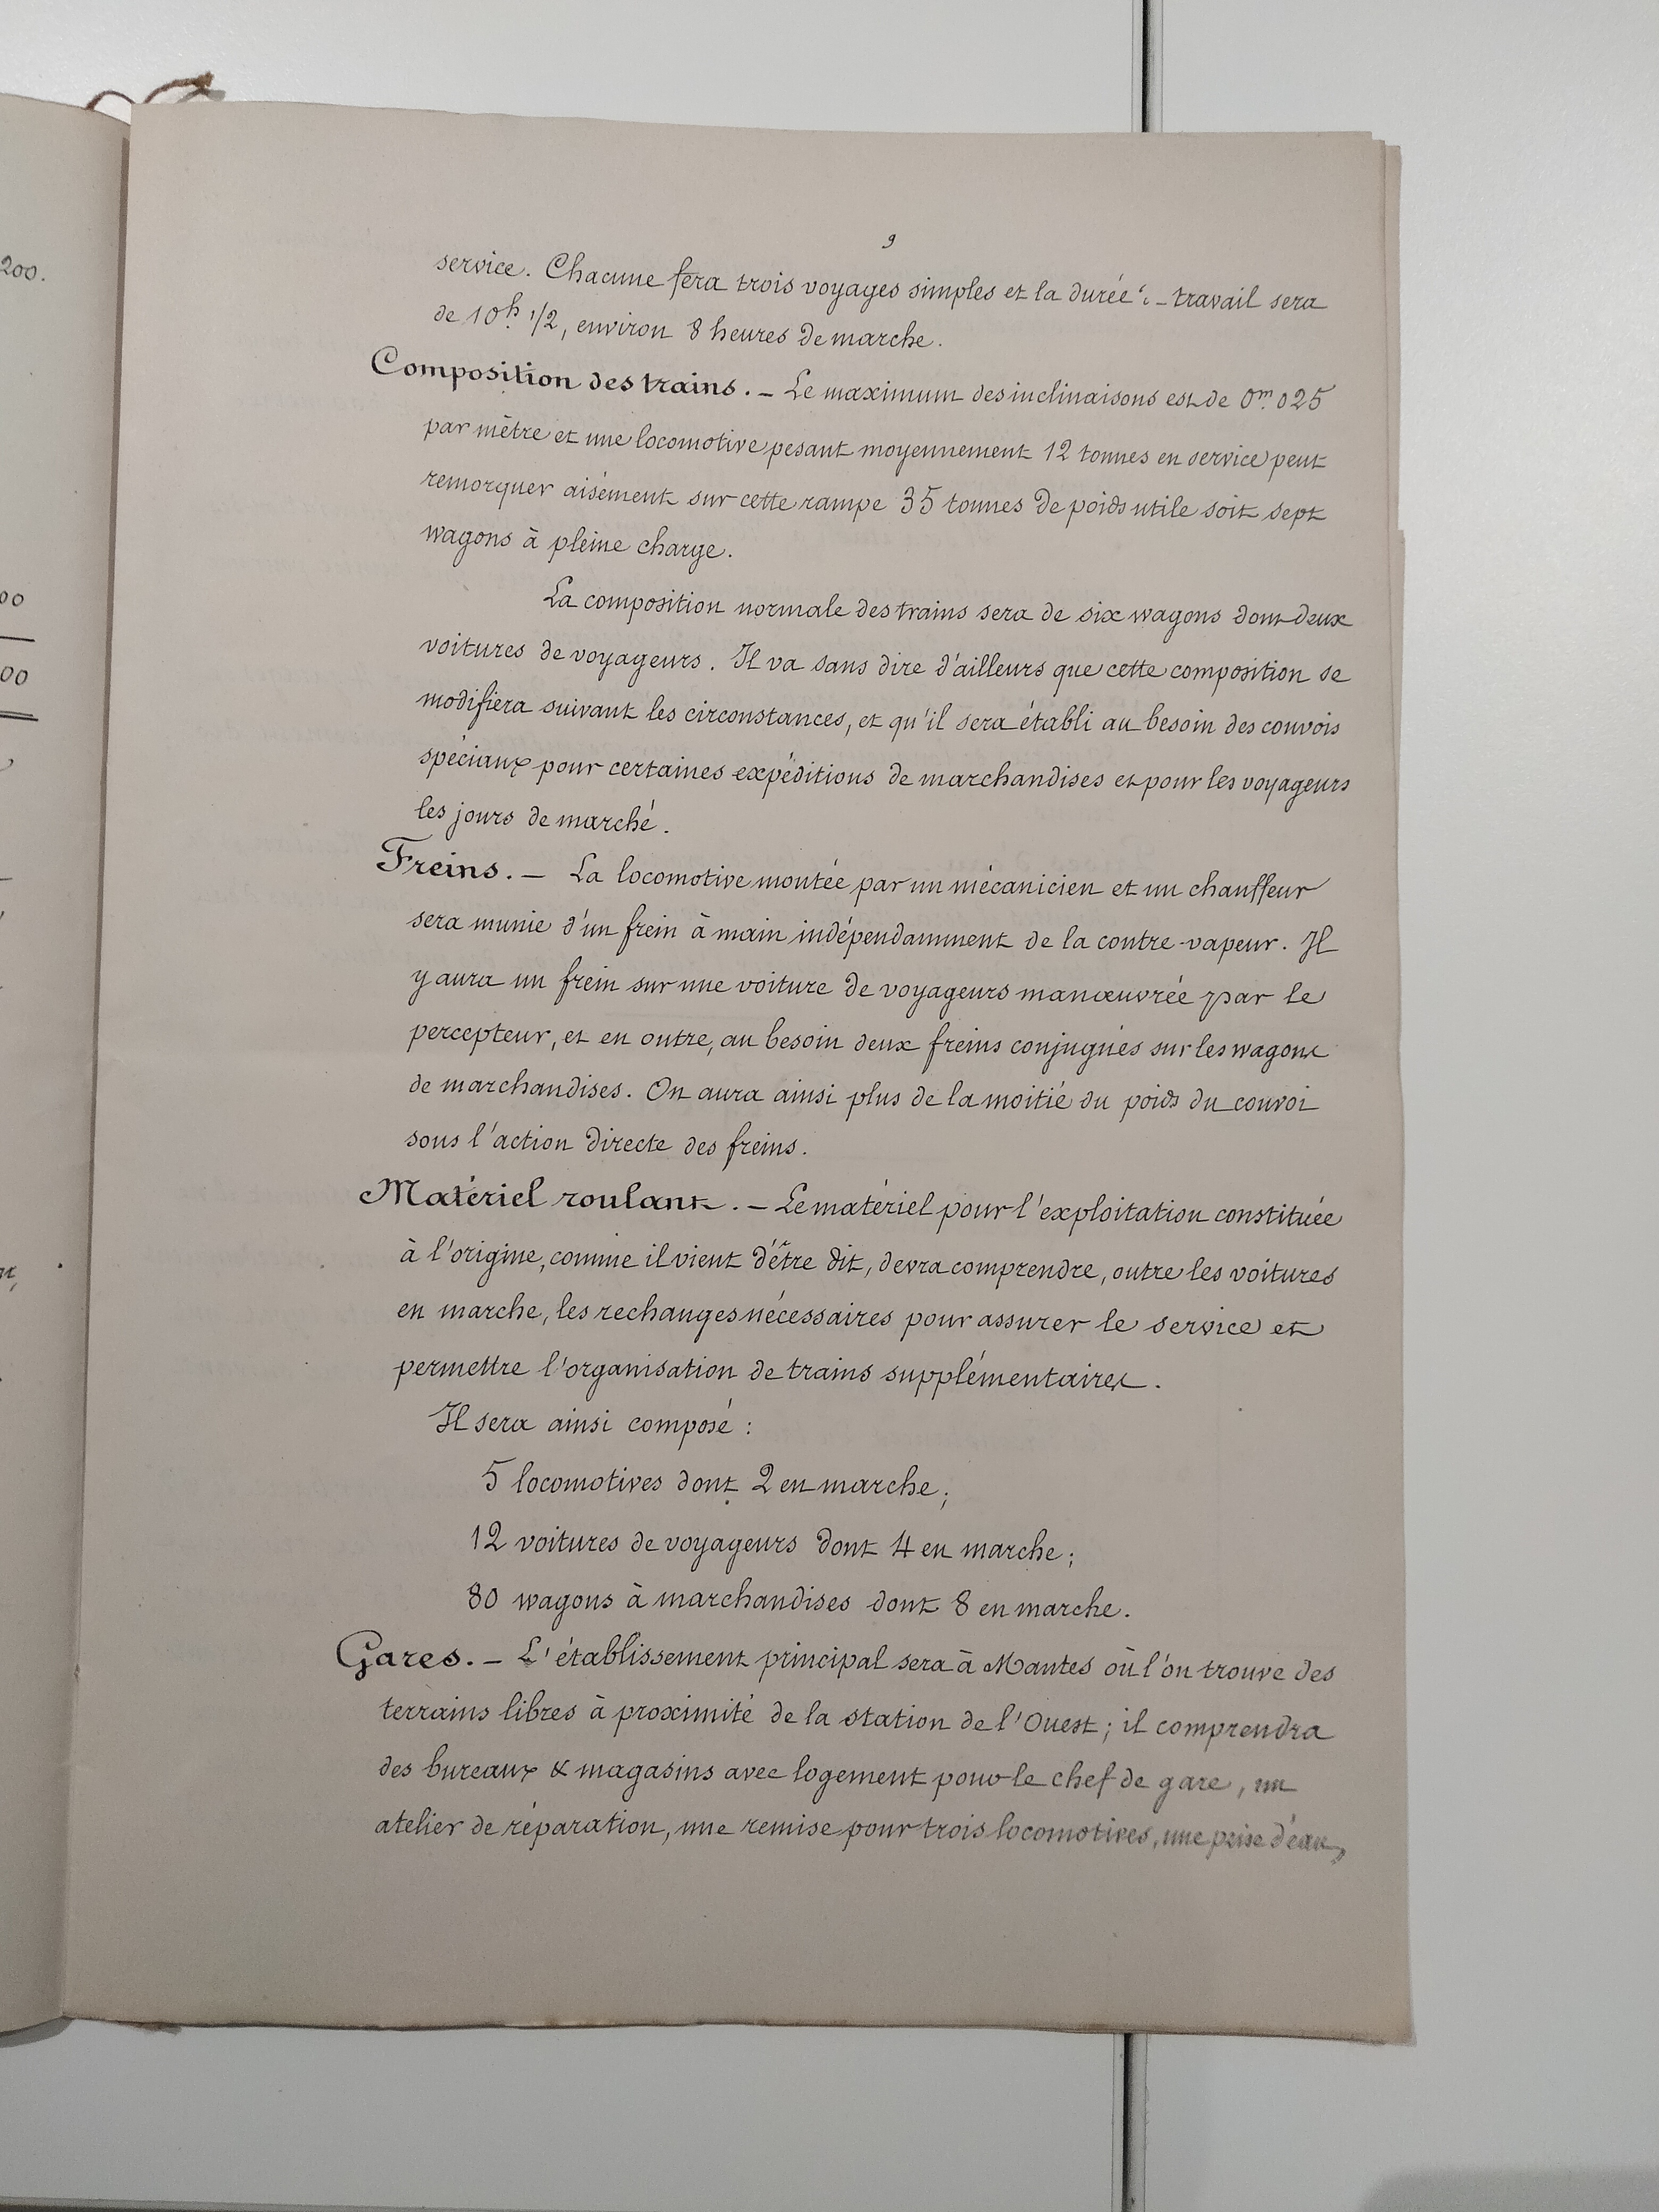 200.
00
00
9
service. Chacune fera trois voyages simples et la durée travail sera
de 10h. 1/2, environ 8 heures de marche.
Composition des trains. — Le maximum des inclinaisons est de 0m.025
par mètre et une locomotive pesant moyennement 12 tonnes en service peut
remorquer aisément sur cette rampe 35 tonnes de poids utile soit sept
wagons à pleine charge.
La composition normale des trains sera de six wagons dont deux
voitures de voyageurs. Il va sans dire d'ailleurs que cette composition se
modifiera suivant les circonstances, et qu'il sera établi au besoin des convois
spéciaux pour certaines expéditions de marchandises et pour les voyageurs
les jours de marché.
Freins. — La locomotive montée par un mécanicien et un chauffeur
sera munie d'un frein à main indépendamment de la contre-vapeur. Il
y aura un frein sur une voiture de voyageurs manœuvrée par le
percepteur, et en outre, au besoin deux freins conjugués sur les wagons
de marchandises. On aura ainsi plus de la moitié du poids du convoi
sous l'action directe des freins.
Matériel roulant. — Le matériel pour l'exploitation constituée
à l'origine, comme il vient d'être dit, devra comprendre, outre les voitures
en marche, les rechanges nécessaires pour assurer le service et
permettre l'organisation de trains supplémentaires.
Il sera ainsi composé :
5 locomotives dont 2 en marche ;
12 voitures de voyageurs dont 4 en marche ;
80 wagons à marchandises dont 8 en marche.
Gares. — L'établissement principal sera à Mantes où l'on trouve des
terrains libres à proximité de la station de l'Ouest ; il comprendra
des bureaux & magasins avec logement pour le chef de gare, un
atelier de réparation, une remise pour trois locomotives, une prise d'eau,